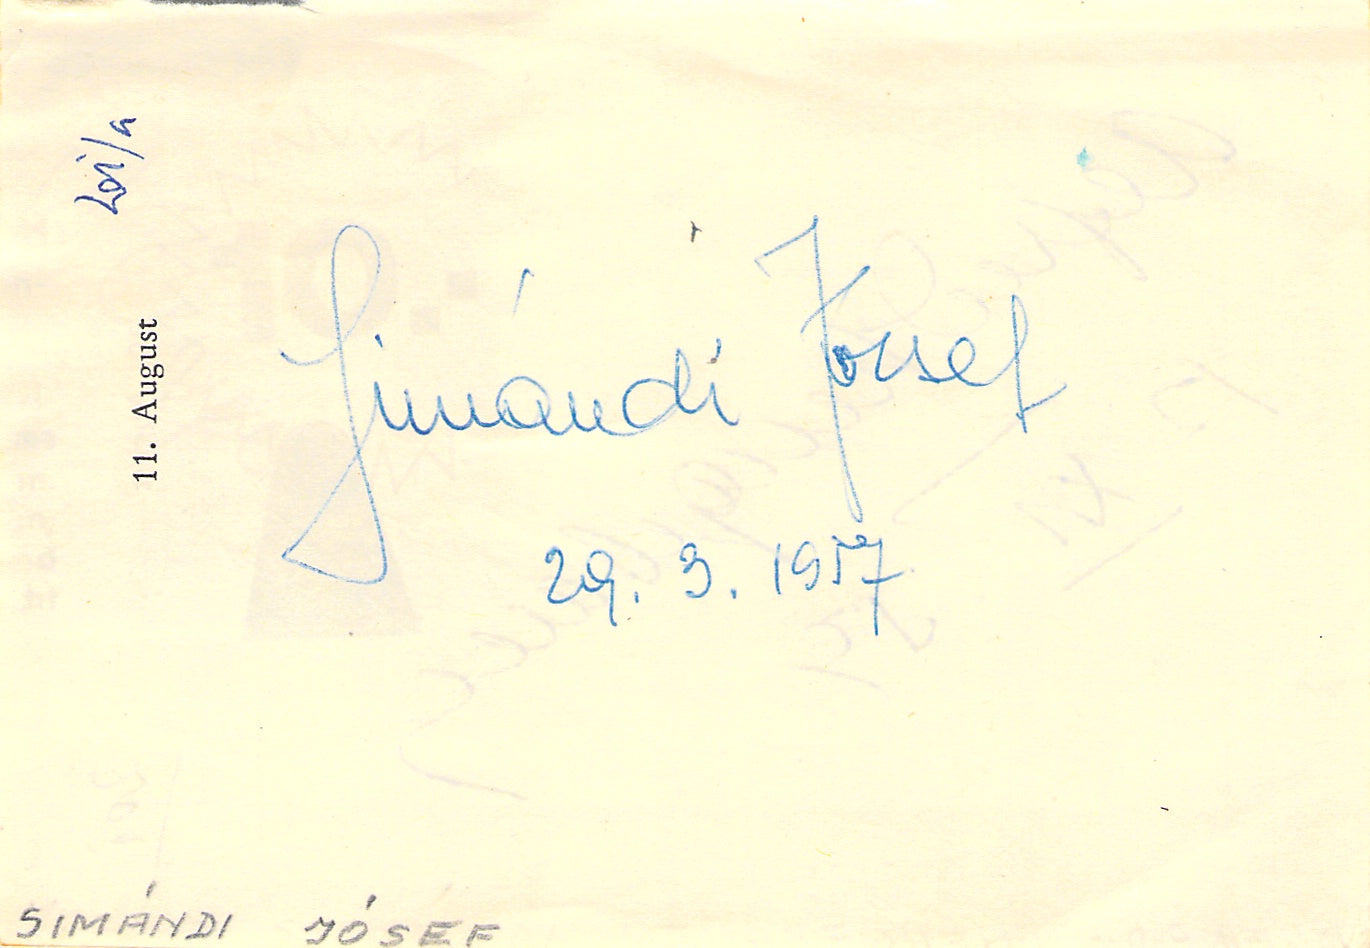 201/a
11. August
Simándi József
29. 3. 1957
SIMÁNDI JÓSEF